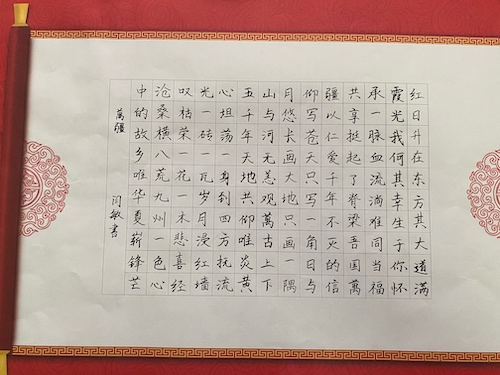 红日升在东方其大道满
霞光我何其幸生于你怀
承一脉血流淌难同当福
共享挺起了脊梁吾国萬
疆以仁爱千年不灭的信
仰写苍天只写一角日与
月悠长画大地只画一隅
山与河无恙观萬古上下
五千年天地共仰唯炎黄
心坦荡一身到四方抚流
光一砖一瓦岁月浸红墙
叹枯荣一花一木悲喜经
沧桑横八荒九州一色心
中的故乡唯华夏崭锋芒
萬疆
闫敏書